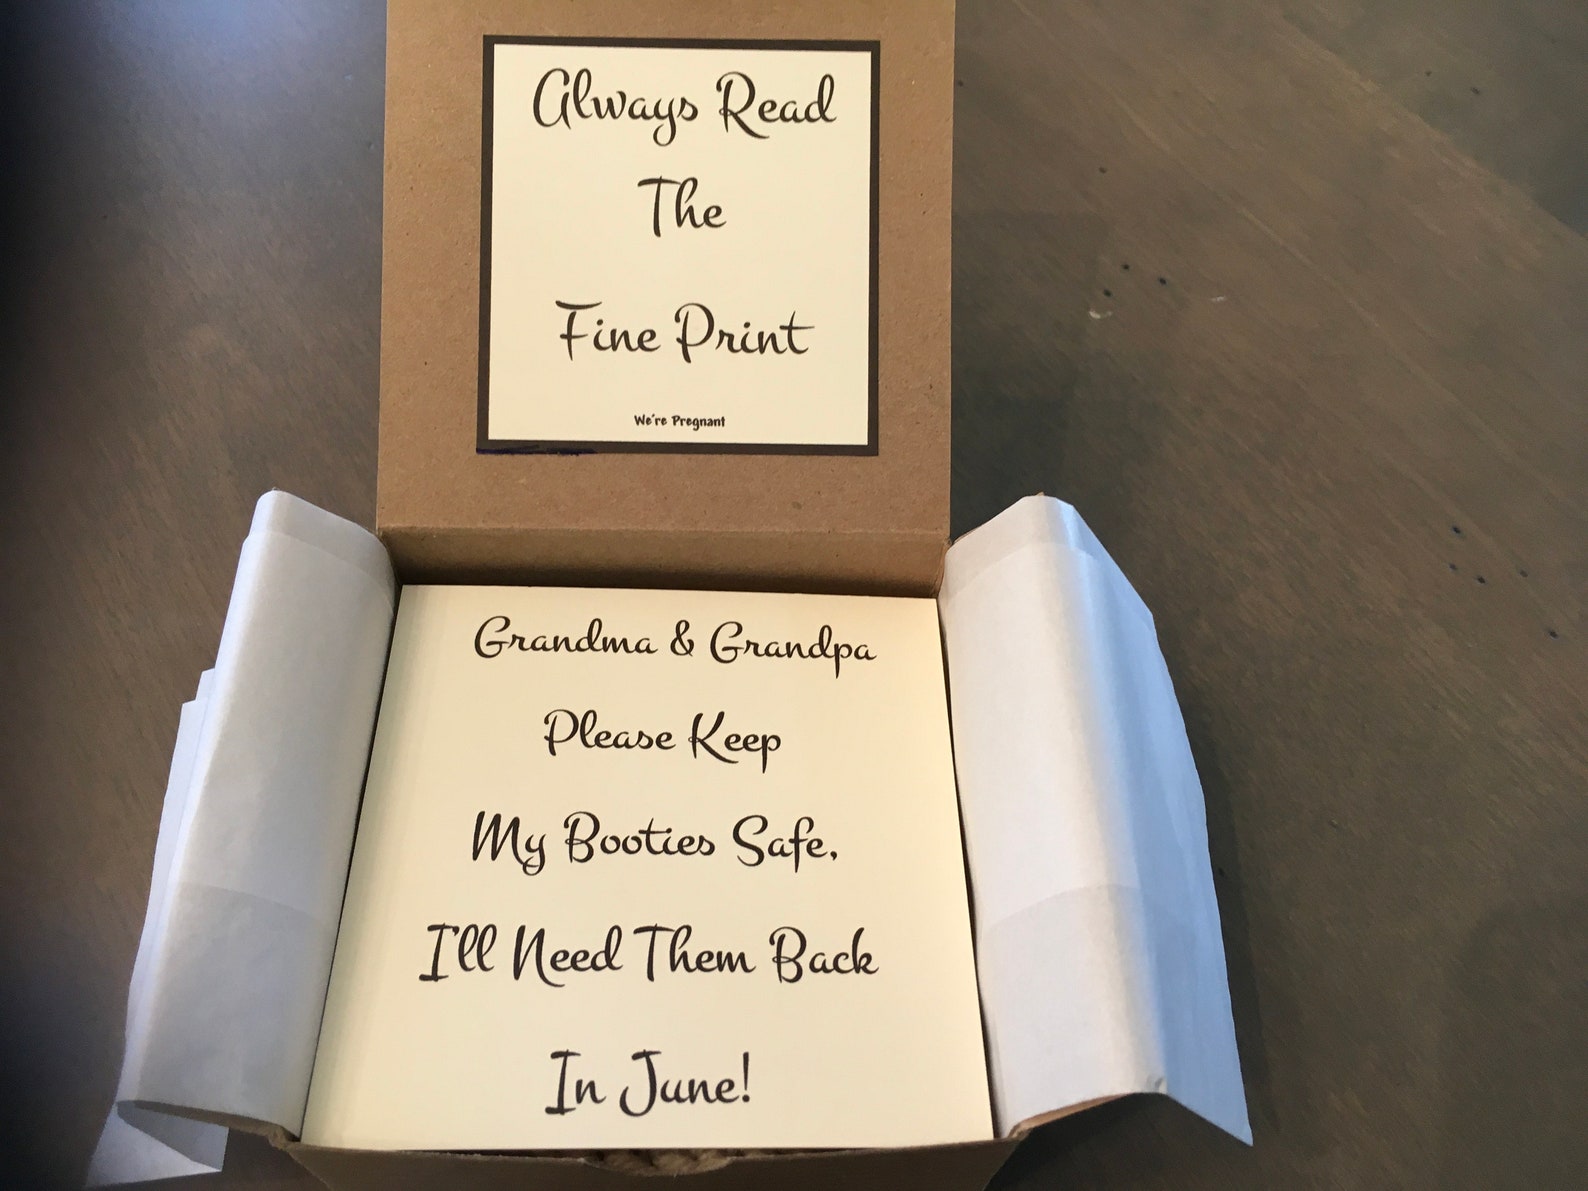 Always Read
The
Fine Print
We're Pregnant
Grandma & Grandpa
Please Keep
My Booties Safe,
I'll Need Them Back
In June!